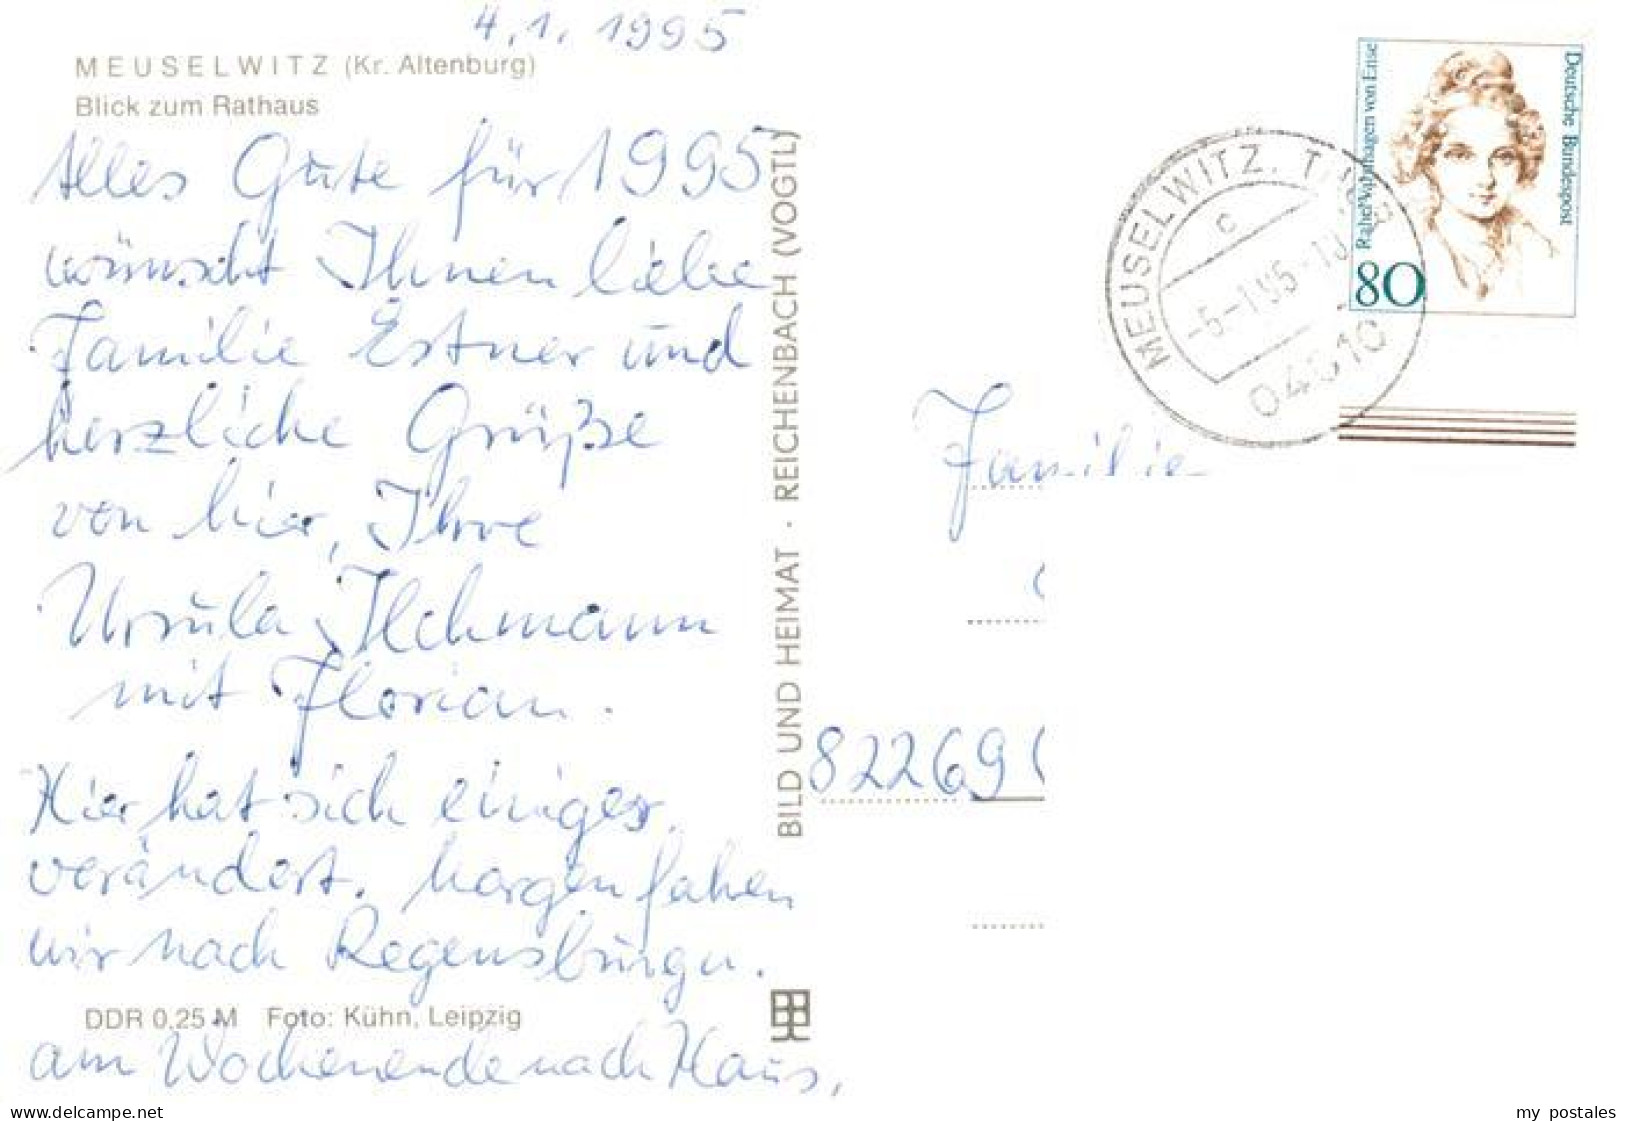 4.1.1995
MEUSELWITZ (Kr. Altenburg)
Blick zum Rathaus
Alles Gute für 1995
wünscht Ihnen liebe
Familie Estner und
herzliche Grüße
von hier, Ihre
Ursula Ilchmann
mit Florian.
Hier hat sich einiges
verändert. Morgen fahren
wir nach Regensburg u.
am Wochenende nach Haus,
DDR 0,25 M Foto: Kühn, Leipzig
BILD UND HEIMAT · REICHENBACH (VOGTL)
Deutsche Bundespost
Rahel Varnhagen von Ense
80
MEUSELWITZ, THÜR
c
-5-1.95-10
04610
Familie
82269
www.delcampe.net
my postales